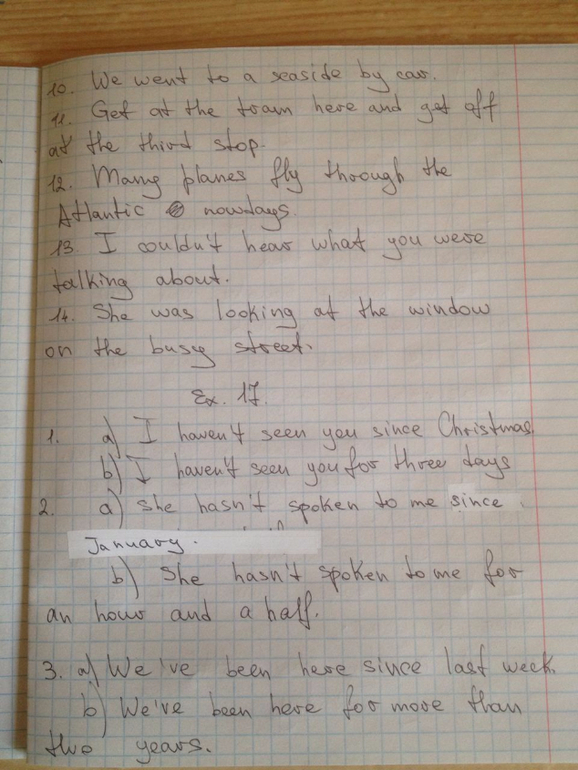 10. We went to a seaside by car.
11. Get at the tram here and get off
at the third stop.
12. Many planes fly through the
Atlantic nowdays.
13. I couldn't hear what you were
talking about.
14. She was looking at the window
on the busy street.
Ex. 17.
1. a) I haven't seen you since Christmas.
b) I haven't seen you for three days
2. a) She hasn't spoken to me since
January.
b) She hasn't spoken to me for
an hour and a half.
3. a) We've been here since last week.
b) We've been here for more than
two years.